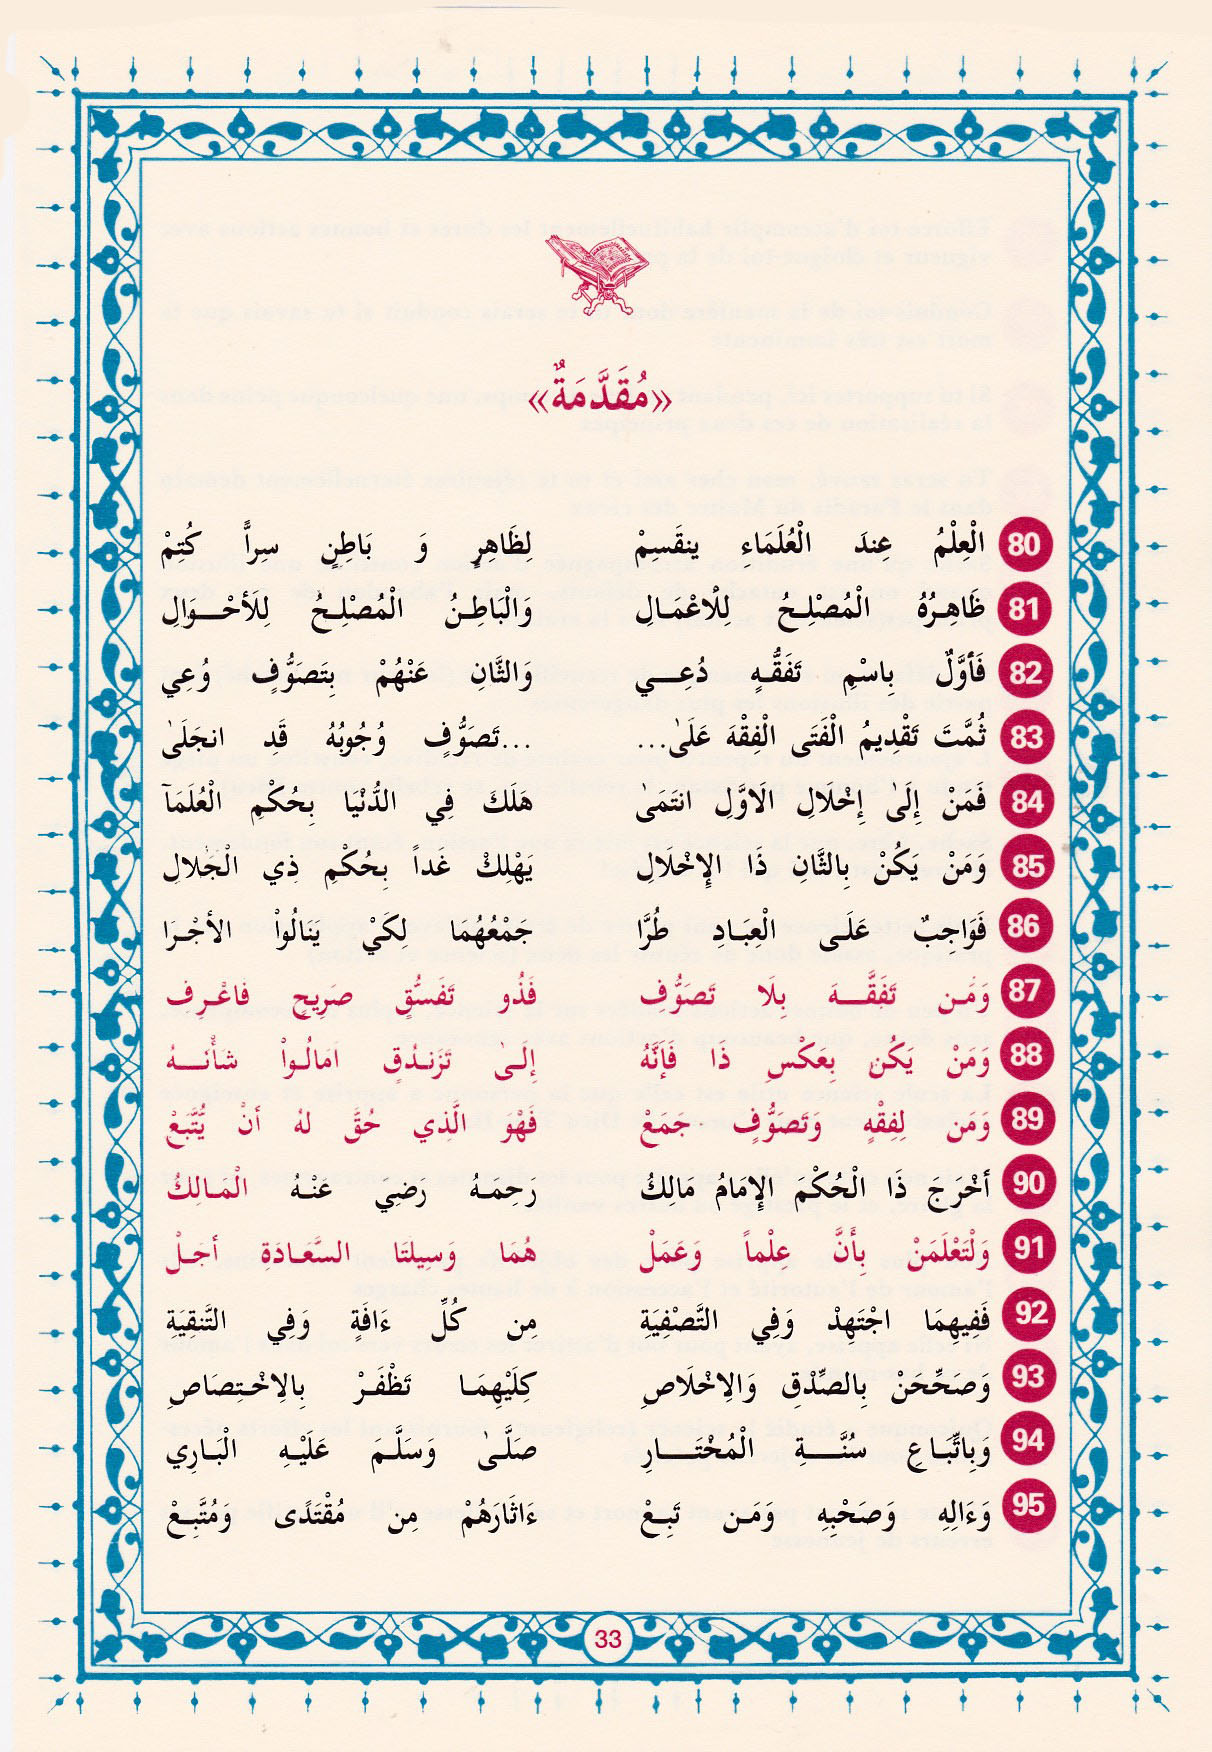 «مُقَدَّمَةٌ»
80 الْعِلْمُ عِندَ الْعُلَمَاء ينقَسِمْ لِظَاهِرٍ وَ بَاطِنٍ سِراًّ كُتمْ
81 ظَاهِرُهُ الْمُصْلِحُ لِلْاعْمَالِ وَالْبَاطِنُ الْمُصْلِحُ لِلَأحْوَالِ
82 فَأوَّلٌ بِاسْمِ تَفَقُّهٍ دُعِي وَالثَّانِ عَنْهُمْ بِتَصَوُّفٍ وُعِي
83 ثُمَّتَ تَقْدِيمُ الْفَتَى الْفِقْهَ عَلَىٰ... ...تَصَوُّفٍ وُجُوبُهُ قَدِ انجَلَىٰ
84 فَمَنْ إِلَىٰ إِخْلَالِ الَاوَّلِ انتَمَىٰ هَلَكَ فِي الدُّنْيَا بِحُكْمِ الْعُلَمَآ
85 وَمَنْ يَكُنْ بِالثَّانِ ذَا الإِخْلَالِ يَهْلِكْ غَداً بِحُكْمِ ذِي الْجَلَالِ
86 فَوَاجِبٌ عَلَى الْعِبَادِ طُرَّا جَمْعُهُمَا لِكَيْ يَنَالُواْ الأجْرَا
87 وَمَن تَفَقَّهَ بِلَا تَصَوُّفِ فَذُو تَفَسُّقٍ صَرِيحٍ فَاعْرِفِ
88 وَمَنْ يَكُن بِعَكْسِ ذَا فَإنَّهُ إلَى تَزَندُقٍ امَالُواْ شَأْنَهُ
89 وَمَن لِفِقْهٍ وَتَصَوُّفٍ جَمَعْ فَهْوَ الَّذِي حُقَّ لهُ أنْ يُتَّبَعْ
90 أخْرَجَ ذَا الْحُكْمَ الإِمَامُ مَالكُ رَحِمَهُ رَضِي عَنْهُ الْمَالِكُ
91 وَلْتَعْلَمَنْ بِأَنَّ عِلْماً وَعَمَلْ هُمَا وَسِيلتَا السَّعَادَةِ أجَلْ
92 فَفِيهِمَا اجْتَهِدْ وَفِي التَّصْفِيَةِ مِن كُلِّ ءَافَةٍ وَفِي التَّنقِيَةِ
93 وَصَحِّحَنْ بِالصِّدْقِ وَالِاخْلَاصِ كِلَيْهِمَا تَظْفَرْ بِالِاخْتِصَاصِ
94 وَبِاتِّبَاعِ سُنَّةِ الْمُخْتَارِ صَلَّىٰ وسَلَّم عَلَيْهِ الْبَارِي
95 وَءَالِهِ وَصَحْبِهِ وَمَن تَبِعْ ءَاثَارَهُمْ مِن مُقْتَدًى وَمُتَّبِعْ
33